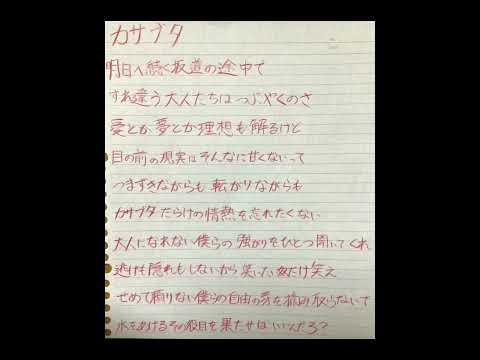 カサブタ
明日へ続く坂道の途中で
すれ違う大人たちはつぶやくのさ
愛とか夢とか理想も解るけど
目の前の現実はそんなに甘くないって
つまずきながらも 転がりながらも
カサブタだらけの情熱を忘れたくない
大人になれない僕らの 強がりをひとつ聞いてくれ
逃げも隠れもしないから 笑いたい奴だけ笑え
せめて頼りない僕らの自由の芽を摘み取らないで
水をあげるその役目を果たせばいいんだろ?